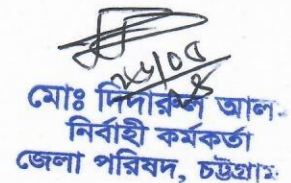 মোঃ দিদারুল আল
নির্বাহী কর্মকর্তা
জেলা পরিষদ, চট্টগ্রাম